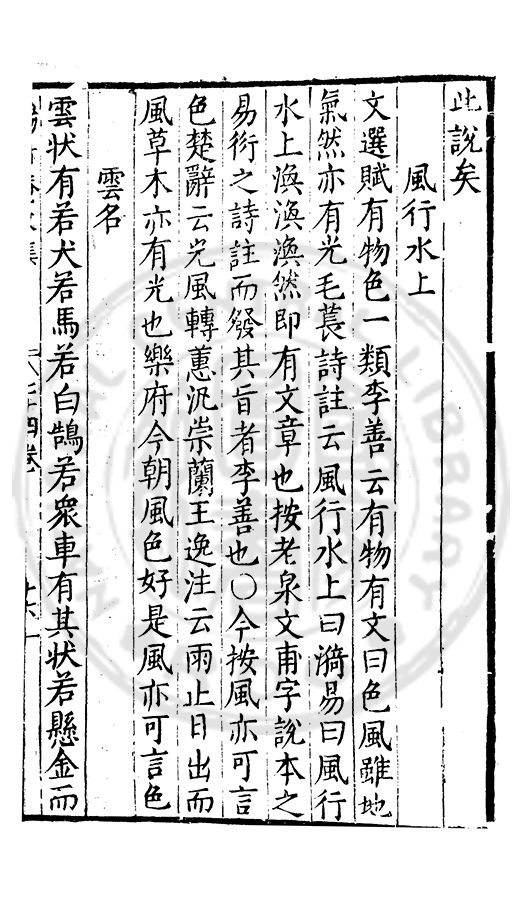 此說矣
風行水上
文選賦有物色一類李善云有物有文曰色風雖地
氣然亦有光毛萇詩註云風行水上曰漪易曰風行
水上渙渙渙然即有文章也按老泉文甫字說本之
易衍之詩註而發其旨者李善也〇今按風亦可言
色楚辭云光風轉蕙汎崇蘭王逸注云雨止日出而
風草木亦有光也樂府今朝風色好是風亦可言色
雲名
雲狀有若犬若馬若白鵠若衆車有其狀若懸金而